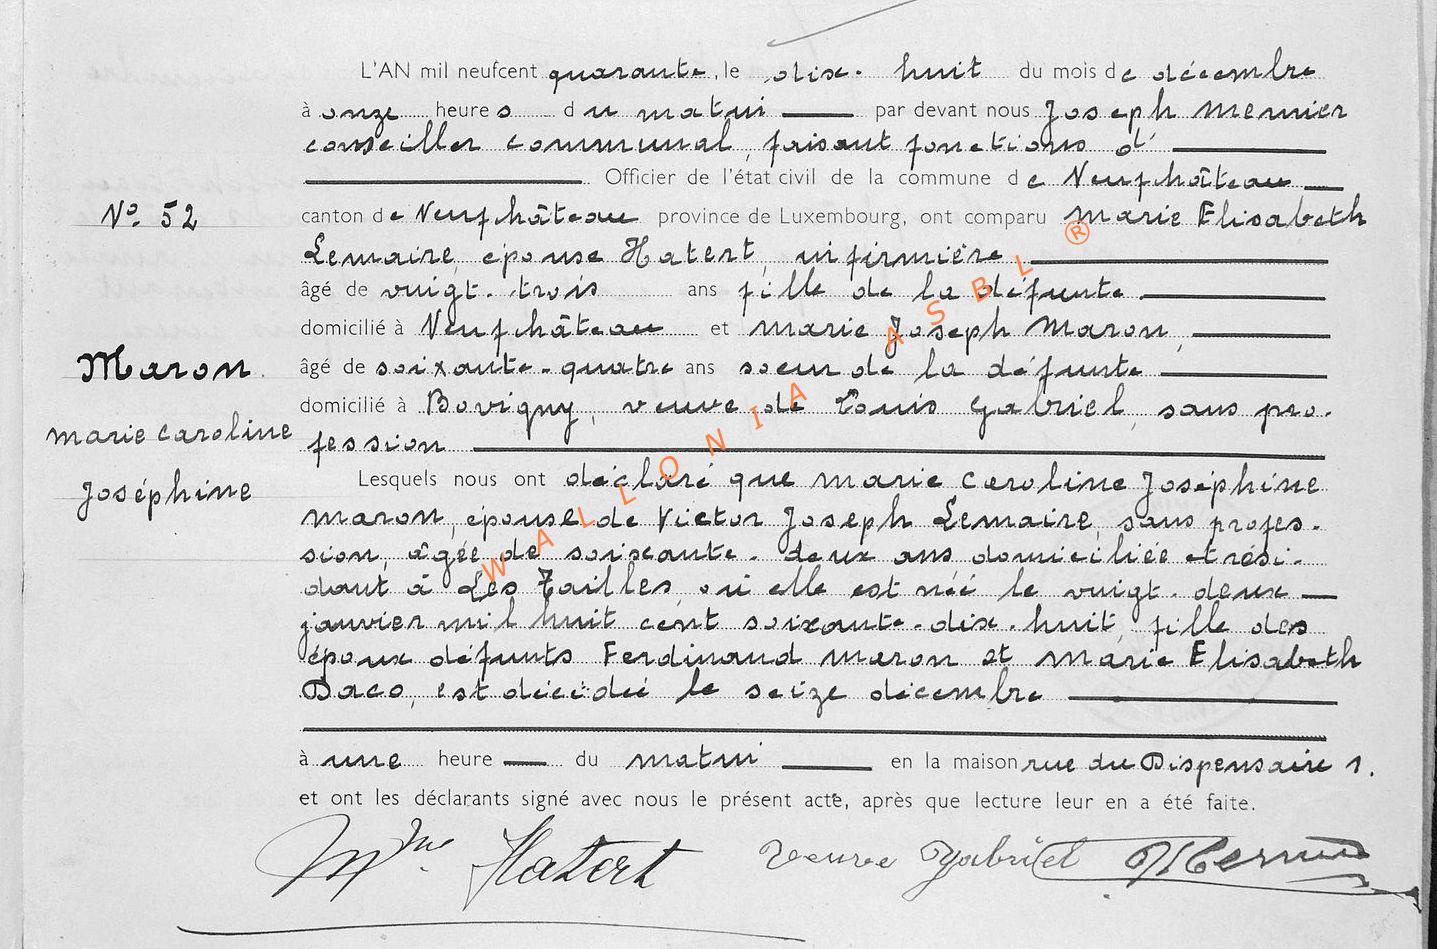 L'AN mil neufcent quarante, le dix-huit du mois de décembre
à onze heures du matin par devant nous Joseph Mernier
conseiller communal, faisant fonctions d'
Officier de l'état civil de la commune de Neufchâteau
N° 52
canton de Neufchâteau province de Luxembourg, ont comparu Marie Elisabeth
Lemaire, épouse Hatert, infirmière
âgé de vingt-trois ans fille de la défunte
domicilié à Neufchâteau et Marie Joseph Maron,
Maron
âgé de soixante-quatre ans soeur de la défunte
domicilié à Bovigny, veuve de Louis Gabriel, sans pro-
Marie Caroline
fession
Joséphine
Lesquels nous ont déclaré que Marie Caroline Joséphine
Maron, épouse de Victor Joseph Lemaire, sans profes-
sion, âgée de soixante-deux ans, domiciliée et rési-
dant à Les Tailles, où elle est née le vingt-deux
janvier mil huit cent soixante-dix-huit, fille des
époux défunts Ferdinand Maron et Marie Elisabeth
Daco, est décédée le seize décembre
à une heure du matin en la maison rue du Dispensaire 1.
et ont les déclarants signé avec nous le présent acte, après que lecture leur en a été faite.
Mme Hatert veuve Gabriel J Mernier
WALLONIA ASBL ®